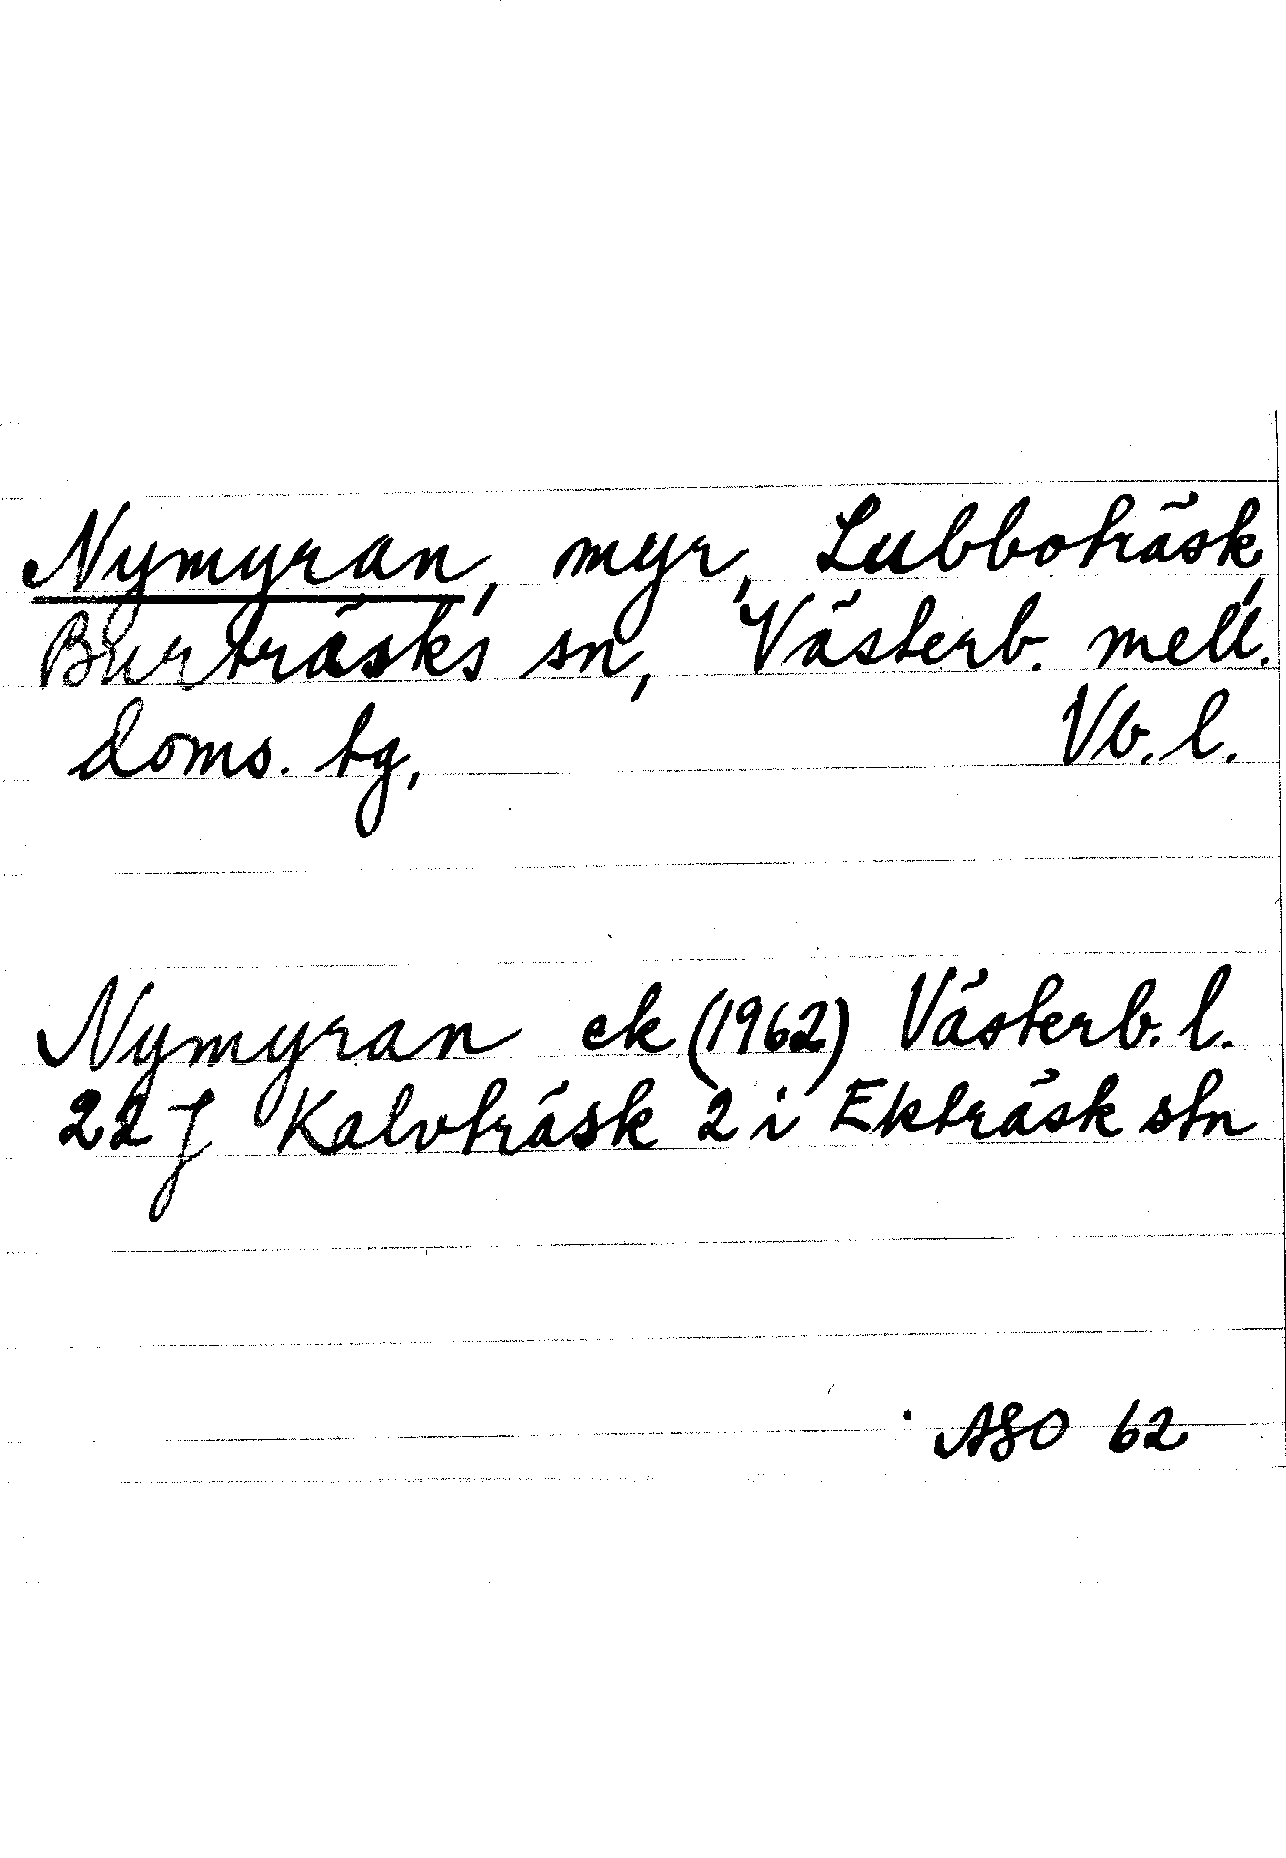 Nymyran, myr, Lubboträsk,
Burträsks sn, Västerb. mell.
doms. tg, Vb. l.
Nymyran ek (1962) Västerb. l.
22 J Kalvträsk 2 i Ekträsk stn
ASO 62